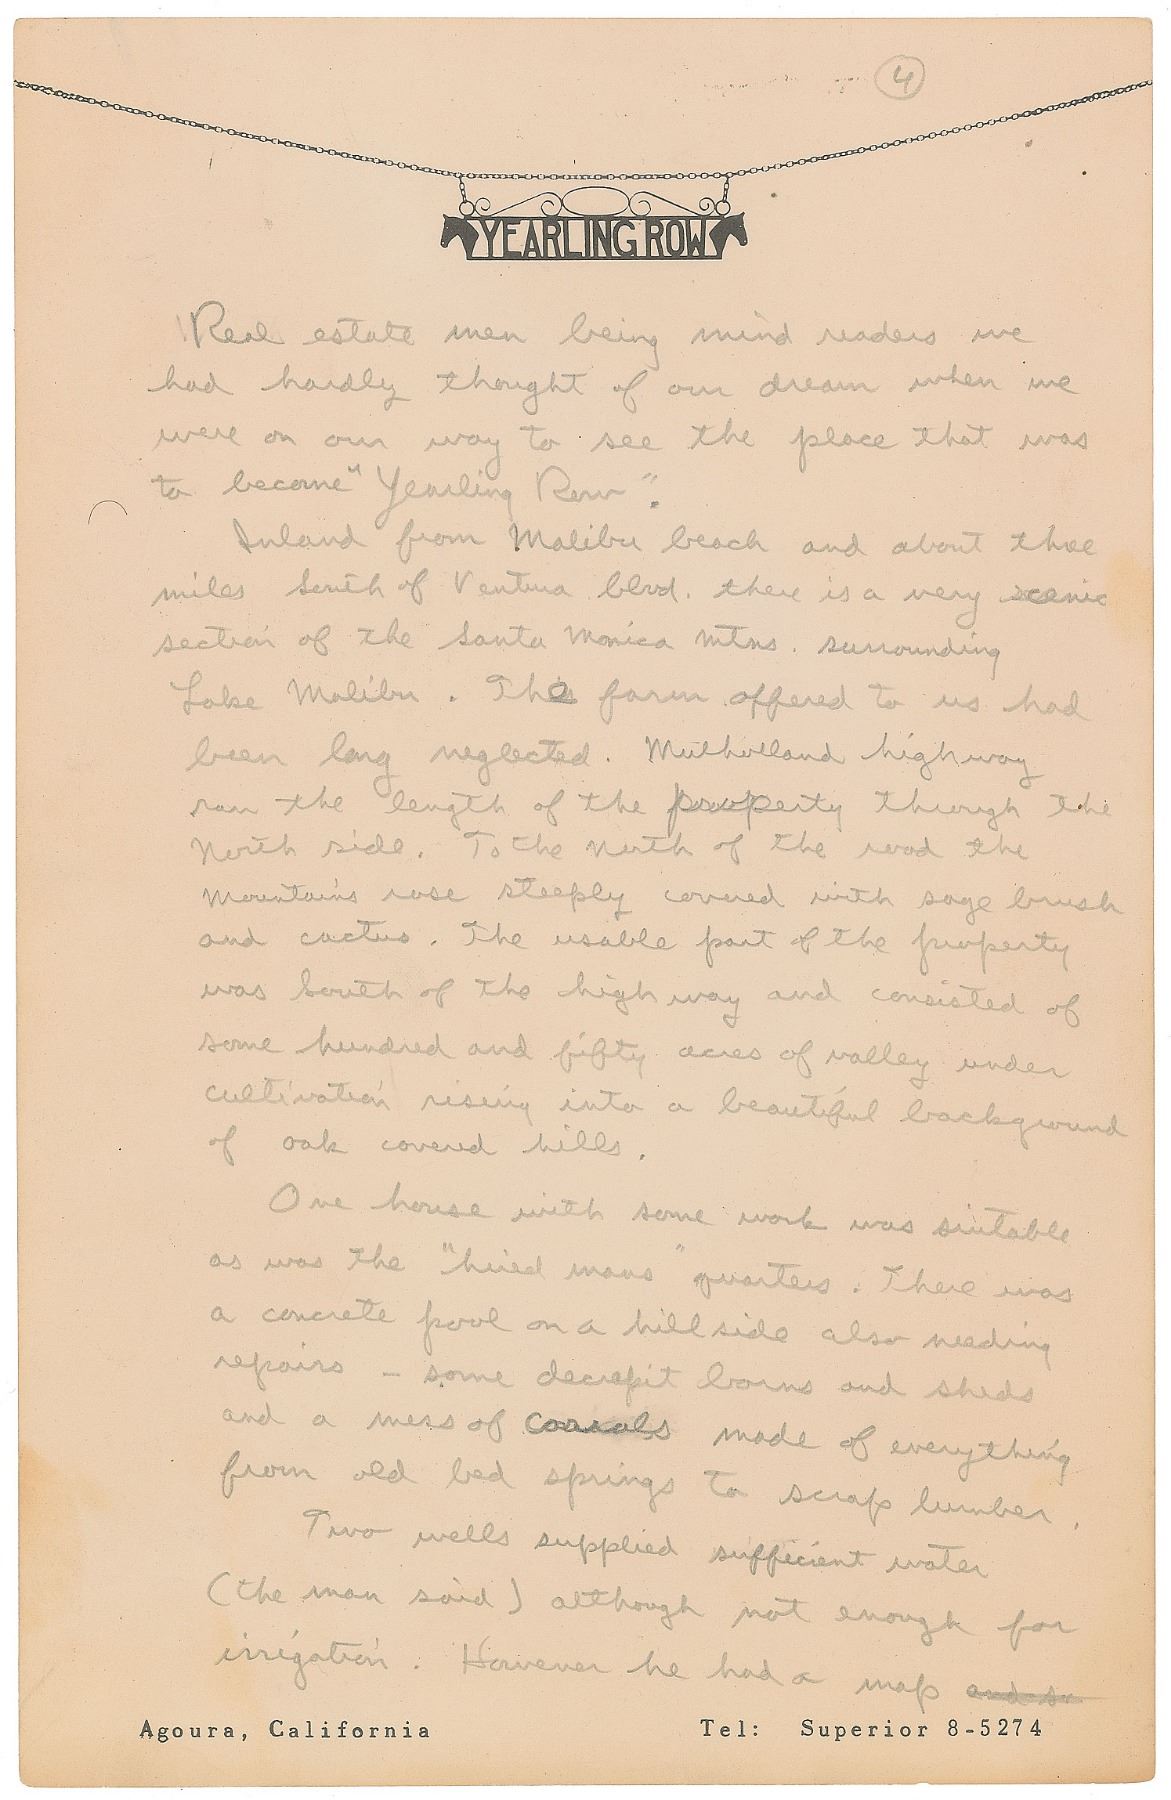 4
YEARLING ROW
Real estate men being mind readers we
had hardly thought of our dream when we
were on our way to see the place that was
to become "Yearling Row".
Inland from Malibu beach and about three
miles South of Ventura blvd. there is a very scenic
section of the Santa Monica Mtns. surrounding
Lake Malibu. The farm offered to us had
been long neglected. Mulholland highway
ran the length of the property through the
North side. To the north of the road the
Mountains rose steeply covered with sage brush
and cactus. The usable part of the property
was South of the highway and consisted of
some hundred and fifty acres of valley under
cultivation rising into a beautiful background
of oak covered hills.
One house with some work was suitable
as was the "hired mans" quarters. There was
a concrete pool on a hillside also needing
repairs – some decrepit barns and sheds
and a mess of corrals made of everything
from old bed springs to scrap lumber.
Two wells supplied sufficient water
(the man said) although not enough for
irrigation. However he had a map and so
Agoura, California Tel: Superior 8-5274